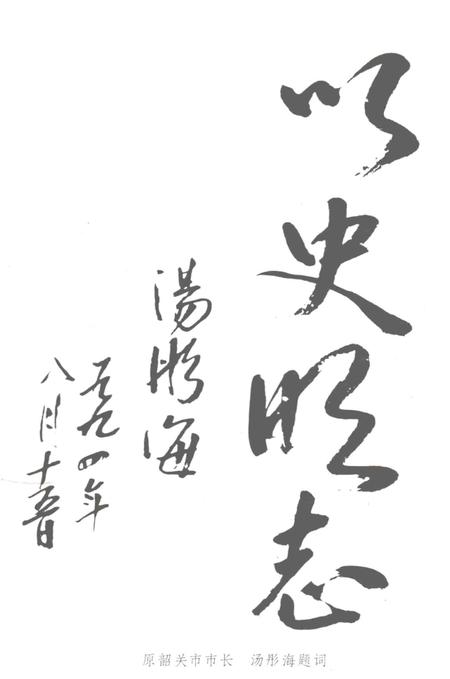 以史明志
湯彤海
一九九四年
八月十五日
原韶关市市长 汤彤海题词